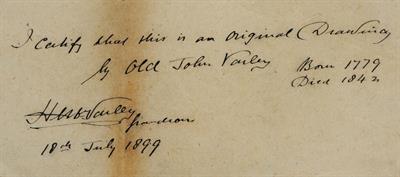 I certify that this is an original Drawing
by Old John Varley
Born 1779
Died 1842
Varley
grandson
18th July 1899